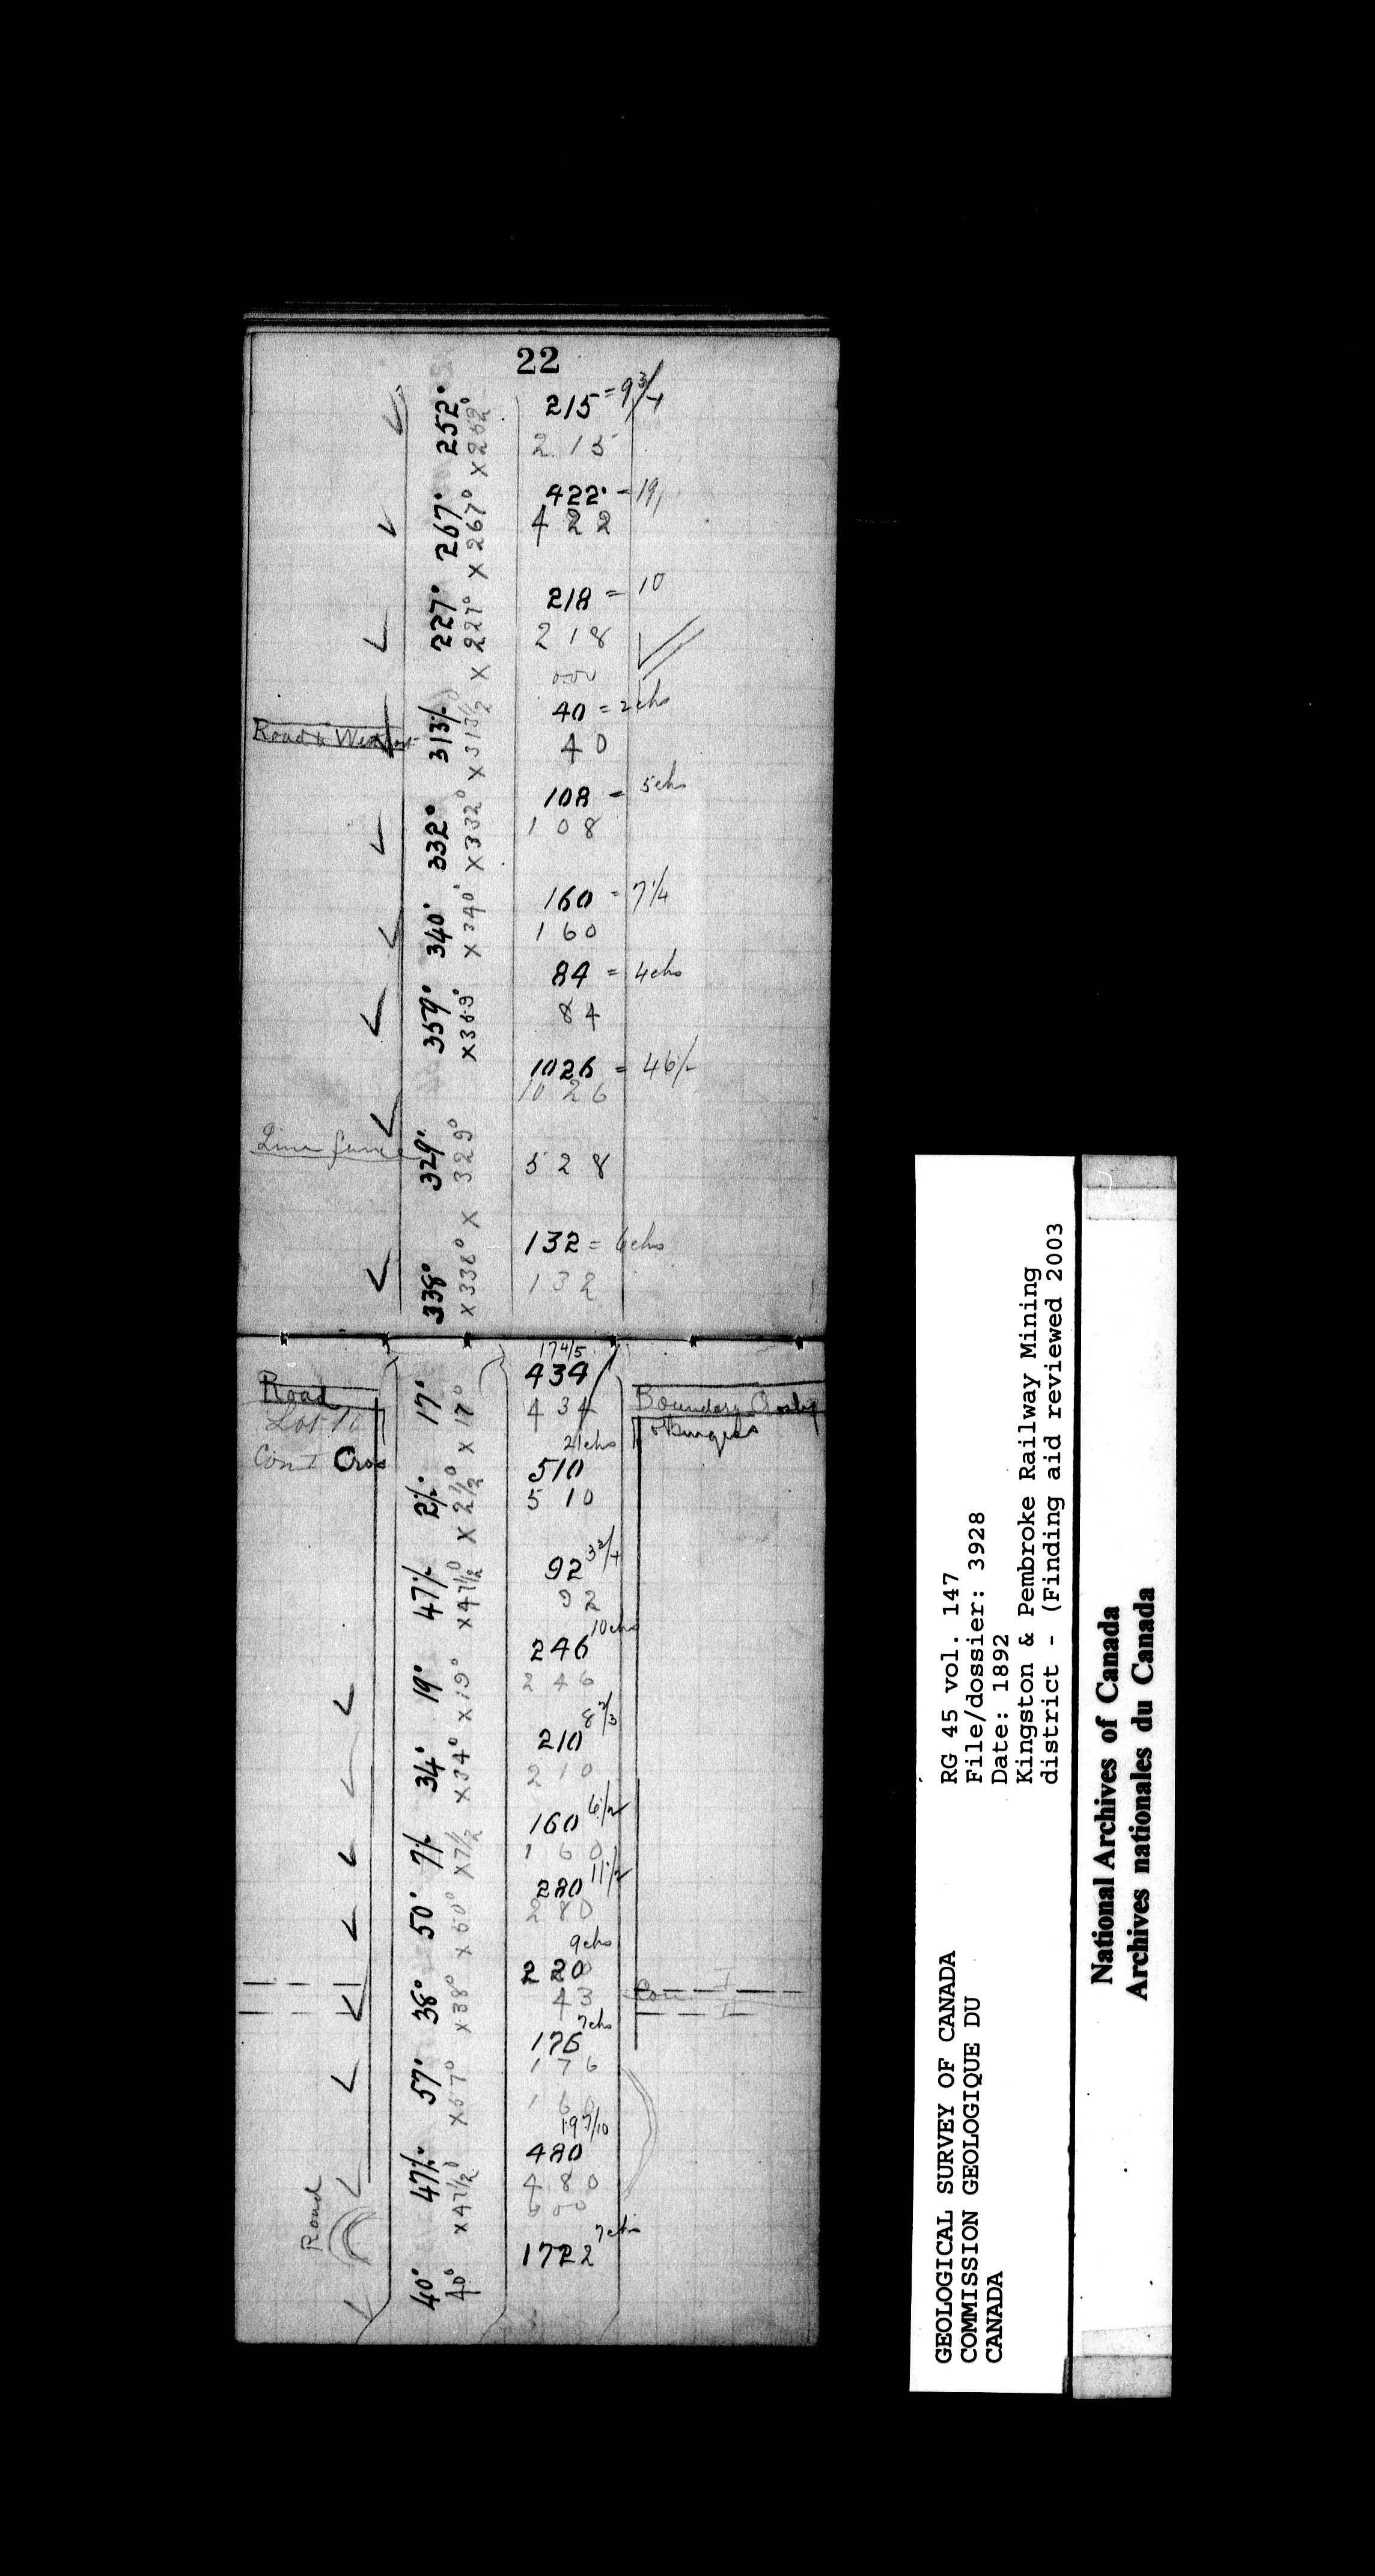 22
252° 215 = 9 3/4
x 252° 215
267° 422 = 19
x 267° 422
227° 218 = 10
x 227° 218
000
313 1/2 40 = 2 chs
x 313 1/2 40
Road to Westport
332° 108 = 5 chs
x 332° 108
340° 160 = 7 1/4
x 340° 160
359° 84 = 4 chs
x 359° 84
1026 = 46 1/2
1026
Line fence
329° 528
x 329°
338° 132 = 6 chs
x 338° 132
17 4/5
Road 17° 434 Boundary Crosby
Lot 10 x 17° 434 + Burgess
Con I Cros
21 chs
2 1/2° 510
x 2 1/2° 510
47 1/2 92 3 3/4
x 47 1/2° 92
19° 246 10 chs
x 19° 246
34° 210 8 2/3
x 34° 210
7 1/2 160 6 1/2
x 7 1/2 160
50° 280 11 1/2
x 50° 280
9 chs
38° 220 Con I
x 38° 43 II
57° 176 7 chs
x 57° 176
160
19 7/10
47 1/2° 480
x 47 1/2° 480
600
Road
40° 1722 7 chs
40°
RG 45 vol. 147
File/dossier: 3928
Date: 1892
Kingston & Pembroke Railway Mining
district - (Finding aid reviewed 2003
GEOLOGICAL SURVEY OF CANADA
COMMISSION GEOLOGIQUE DU
CANADA
National Archives of Canada
Archives nationales du Canada